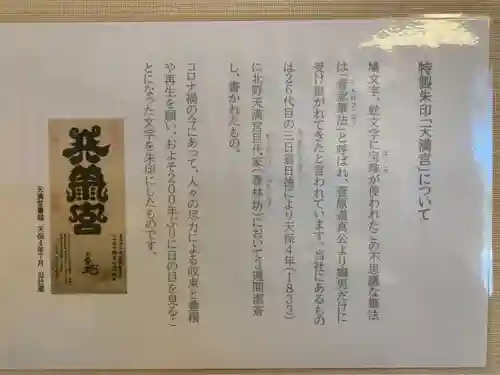 特製朱印「天満宮」について
鳩文字、蛇文字に宝珠が使われたこの不思議な筆法
は「菅家筆法」と呼ばれ、菅原道真公より嫡男だけに
受け継がれてきたと言われています。当社にあるもの
は26代目の三日翁日徳により天保4年(1833)
に北野天満宮目代家(春林坊)において3週間潔斎
し、書かれたもの。
コロナ禍の今にあって、人々の尽力による収束と豊穣
や再生を願い、およそ200年ぶりに日の目を見るこ
とになった文字を朱印にしたものです。
天満宮
天保4年7月